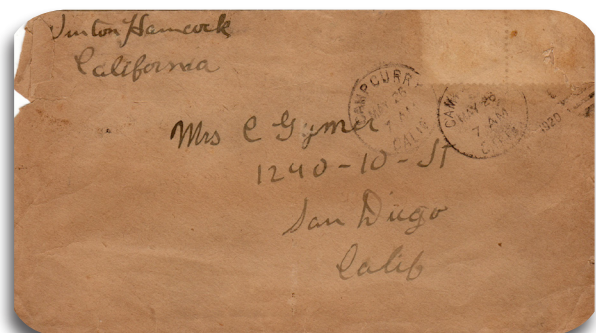 Vinton Hamcock
California
CAMP CURRY
MAY 26
7 AM
CALIF
CAMP
MAY 26
7 AM
CALIF
1920
Mrs C Gymer
1240-10-St
San Diego
Calif